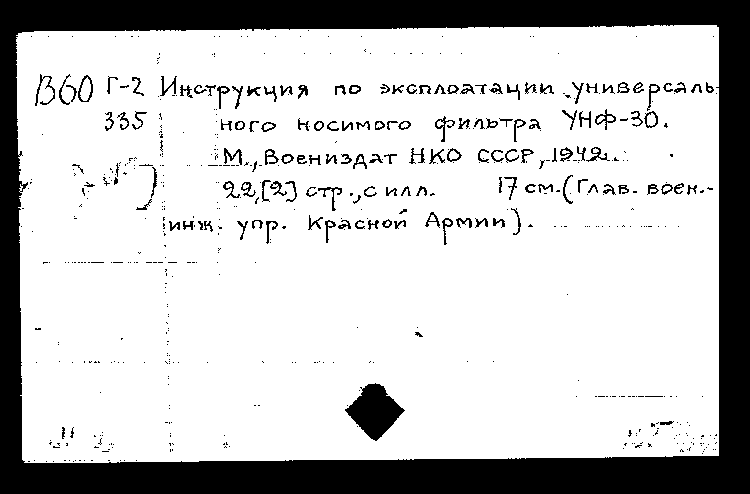 В60 Г-2 Инструкция по эксплоатации универсаль-
335 ного носимого фильтра УНФ-30.
М., Воениздат НКО СССР, 1942.
22,[2] стр., с илл. 17 см. (Глав. воен.-
инж. упр. Красной Армии).